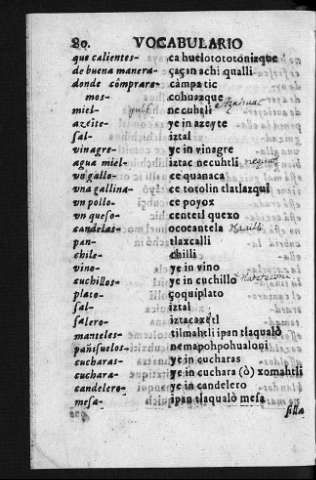 80. VOCABULARIO
que calientes- ca huelotototonizque
de buena manera- çaçan achi qualli
donde cõprare- cãmpa tic
mos- cohuazque
miel- necuhtli
azeite- ye in azeyte
sal- iztal
vinagre- ye in vinagre
agua miel- iztac necuhtli
vn gallo- ce quanaca
vna gallina- ce totolin tlatlazqui
vn pollo- ce poyox
vn queso- centetl quexo
candelas- ococantela
pan- tlaxcalli
chile- chilli
vino- ye in vino
cuchillos- ye in cuchillo
plato- çoquiplato
sal- iztal
salero- iztacaxetl
manteles- tilmahtli ipan tlaqualò
pañisuelos- nemapohpohualoni
cucharas- ye in cucharas
cuchara- ye in cuchara (ò) xomahtli
candelero- ye in candelero
mesa- ipan tlaqualò mesa
silla